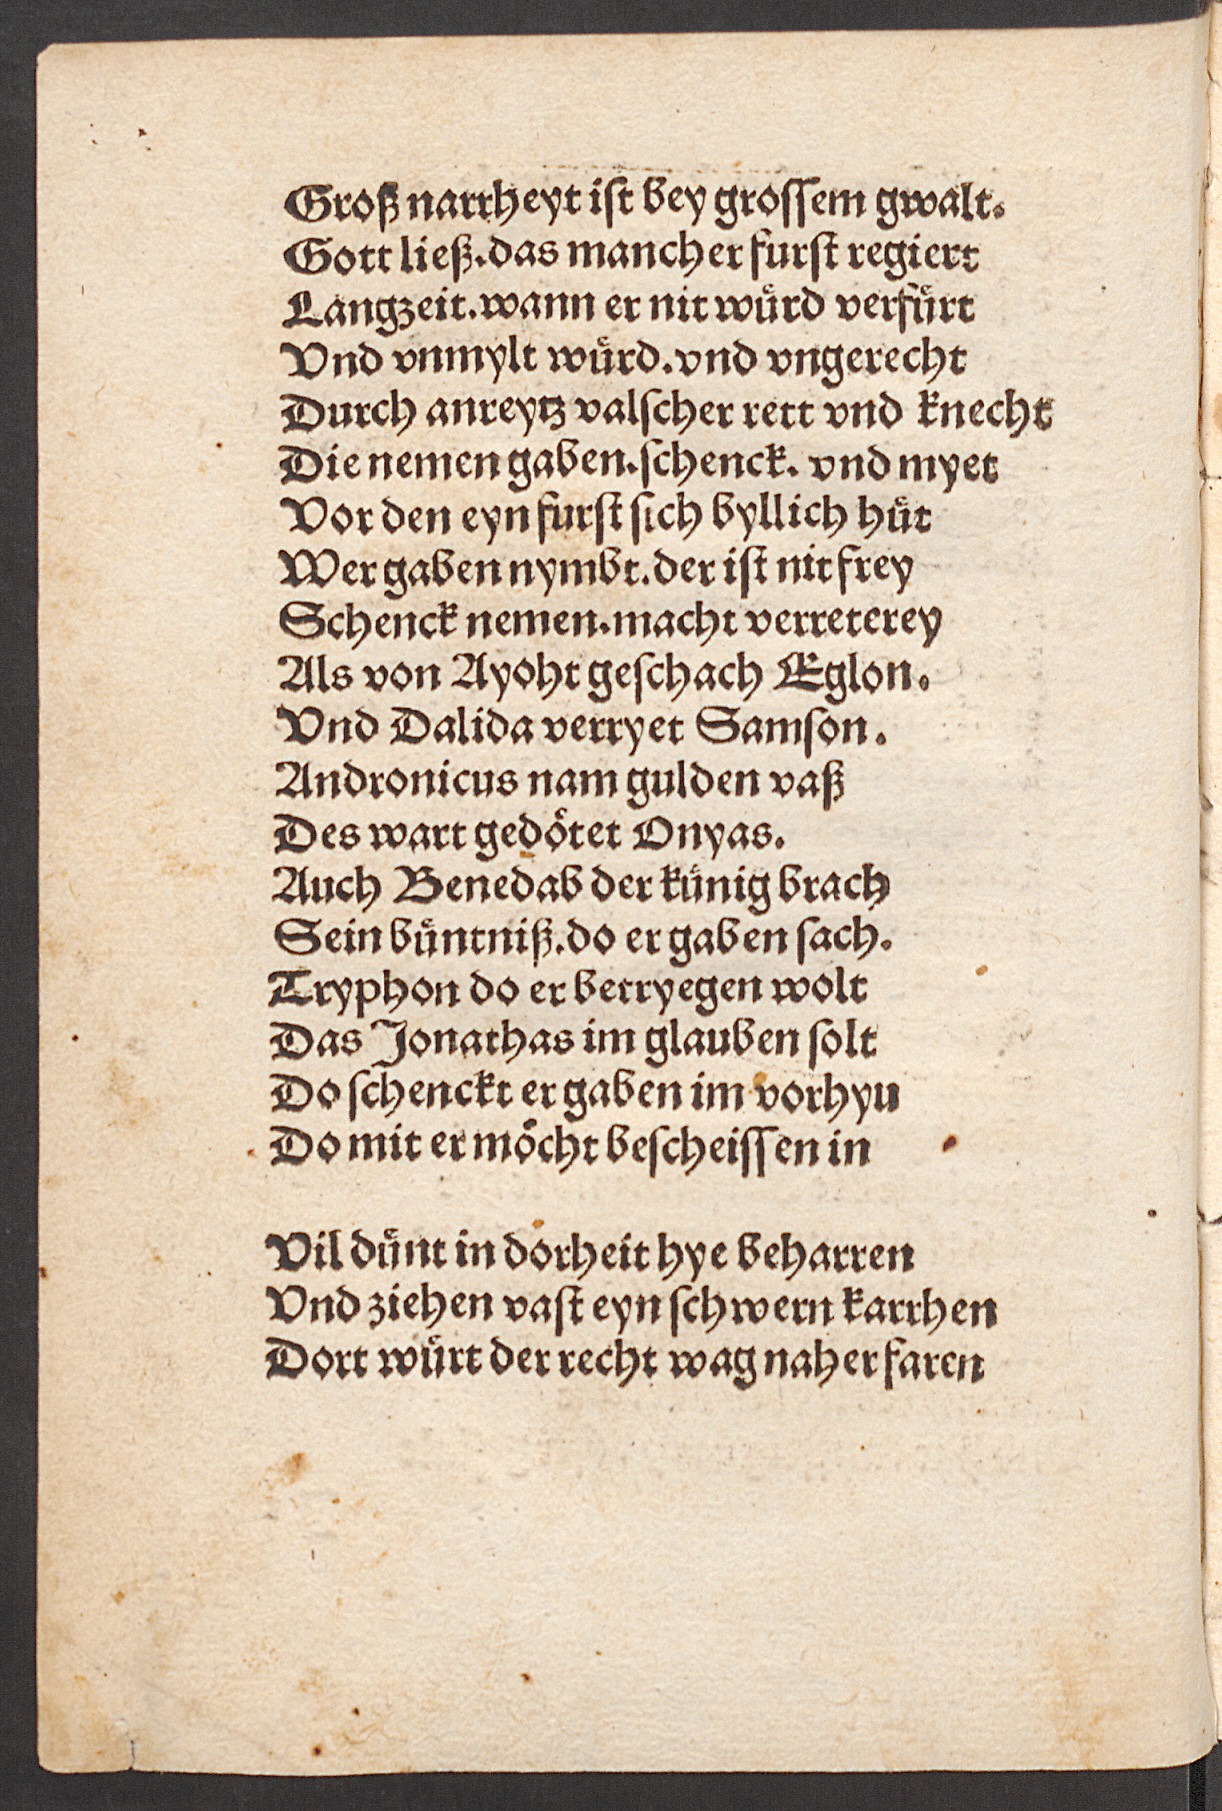 Groß narrheyt ist bey grossem gwalt.
Gott ließ. das mancher furst regiert
Langzeit. wann er nit wuͤrd verfuͤrt
Vnd vnmylt wuͤrd. vnd vngerecht
Durch anreytz valscher rett vnd knecht
Die nemen gaben. schenck. vnd myet
Vor den eyn furst sich byllich huͤt
Wer gaben nymbt. der ist nit frey
Schenck nemen. macht verreterey
Als von Ayoht geschach Eglon.
Vnd Dalida verryet Samson.
Andronicus nam gulden vaß
Des wart gedoͤtet Onyas.
Auch Benedab der kuͤnig brach
Sein buͤntniß. do er gaben sach.
Tryphon do er betryegen wolt
Das Jonathas im glauben solt
Do schenckt er gaben im vorhyu
Do mit er moͤcht bescheissen in

Vil duͤnt in dorheit hye beharren
Vnd ziehen vast eyn schwern karrhen
Dort wuͤrt der recht wag naher faren